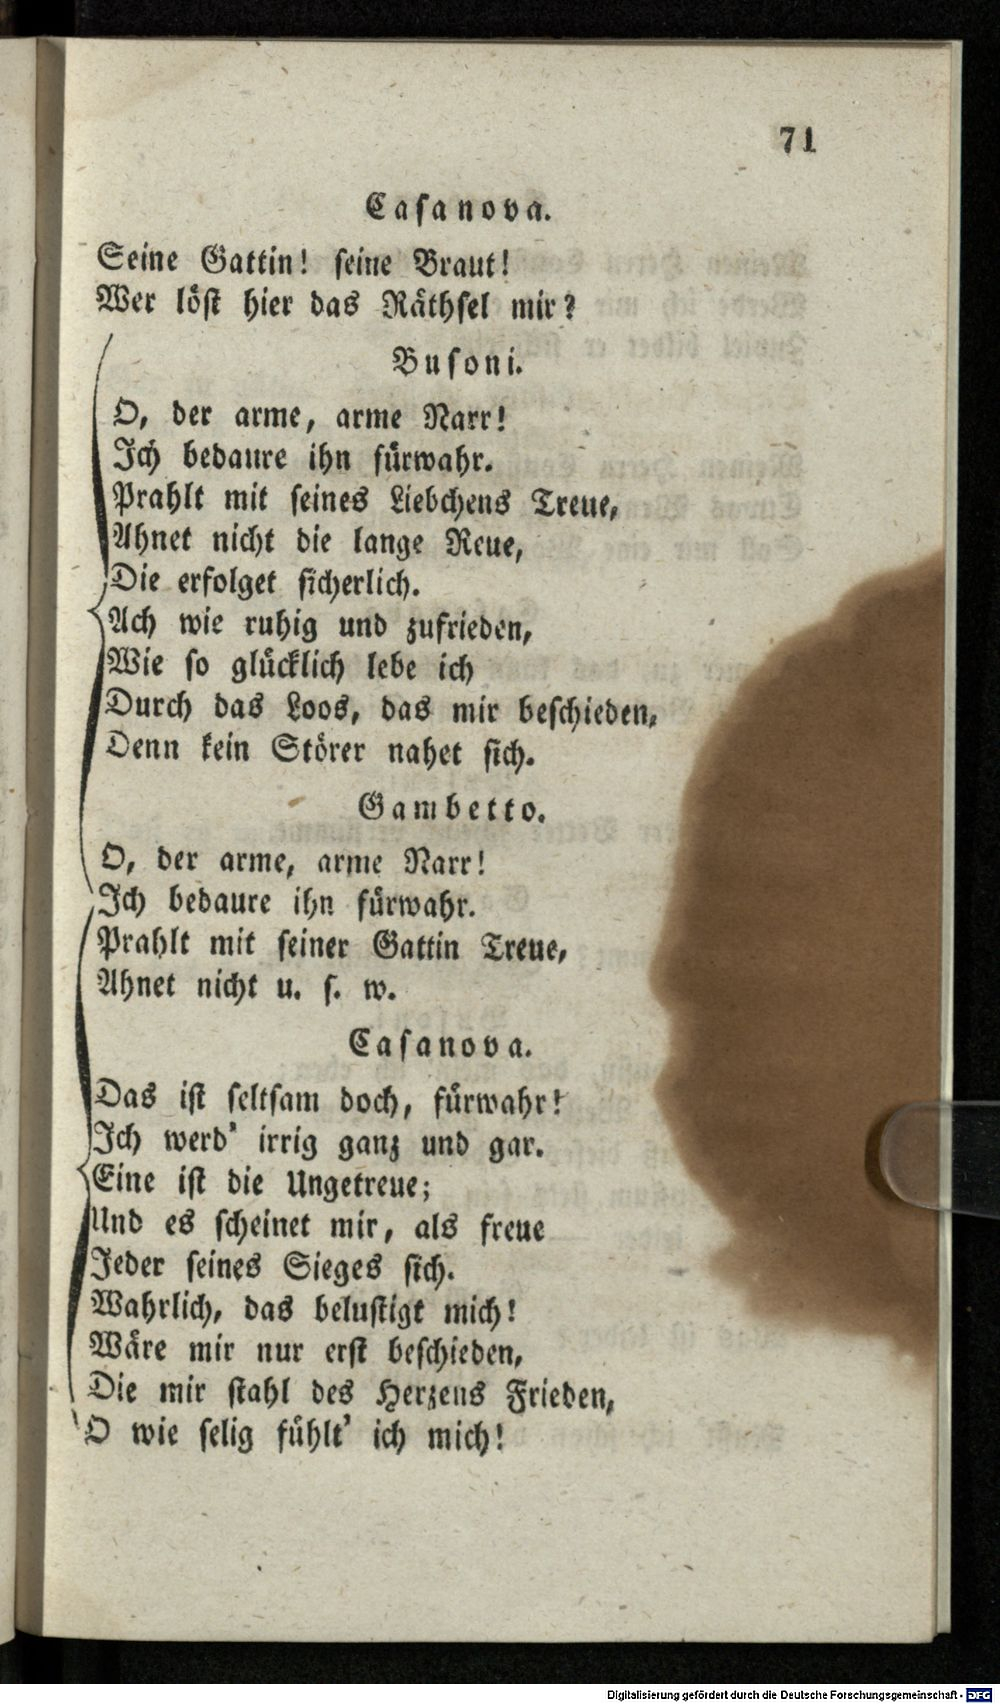 71
Casanova.
Seine Gattin! seine Braut!
Wer löst hier das Räthsel mir?
Busoni.
O, der arme, arme Narr!
Ich bedaure ihn fürwahr.
Prahlt mit seines Liebchens Treue,
Ahnet nicht die lange Reue,
Die erfolget sicherlich.
Ach wie ruhig und zufrieden,
Wie so glücklich lebe ich
Durch das Loos, das mir beschieden,
Denn kein Störer nahet sich.
Gambetto.
O, der arme, arme Narr!
Ich bedaure ihn fürwahr.
Prahlt mit seiner Gattin Treue,
Ahnet nicht u. s. w.
Casanova.
Das ist seltsam doch, fürwahr!
Ich werd' irrig ganz und gar.
Eine ist die Ungetreue;
Und es scheinet mir, als freue
Jeder seines Sieges sich.
Wahrlich, das belustigt mich!
Wäre mir nur erst beschieden,
Die mir stahl des Herzens Frieden,
O wie selig fühlt' ich mich!
Digitalisierung gefördert durch die Deutsche Forschungsgemeinschaft - DFG